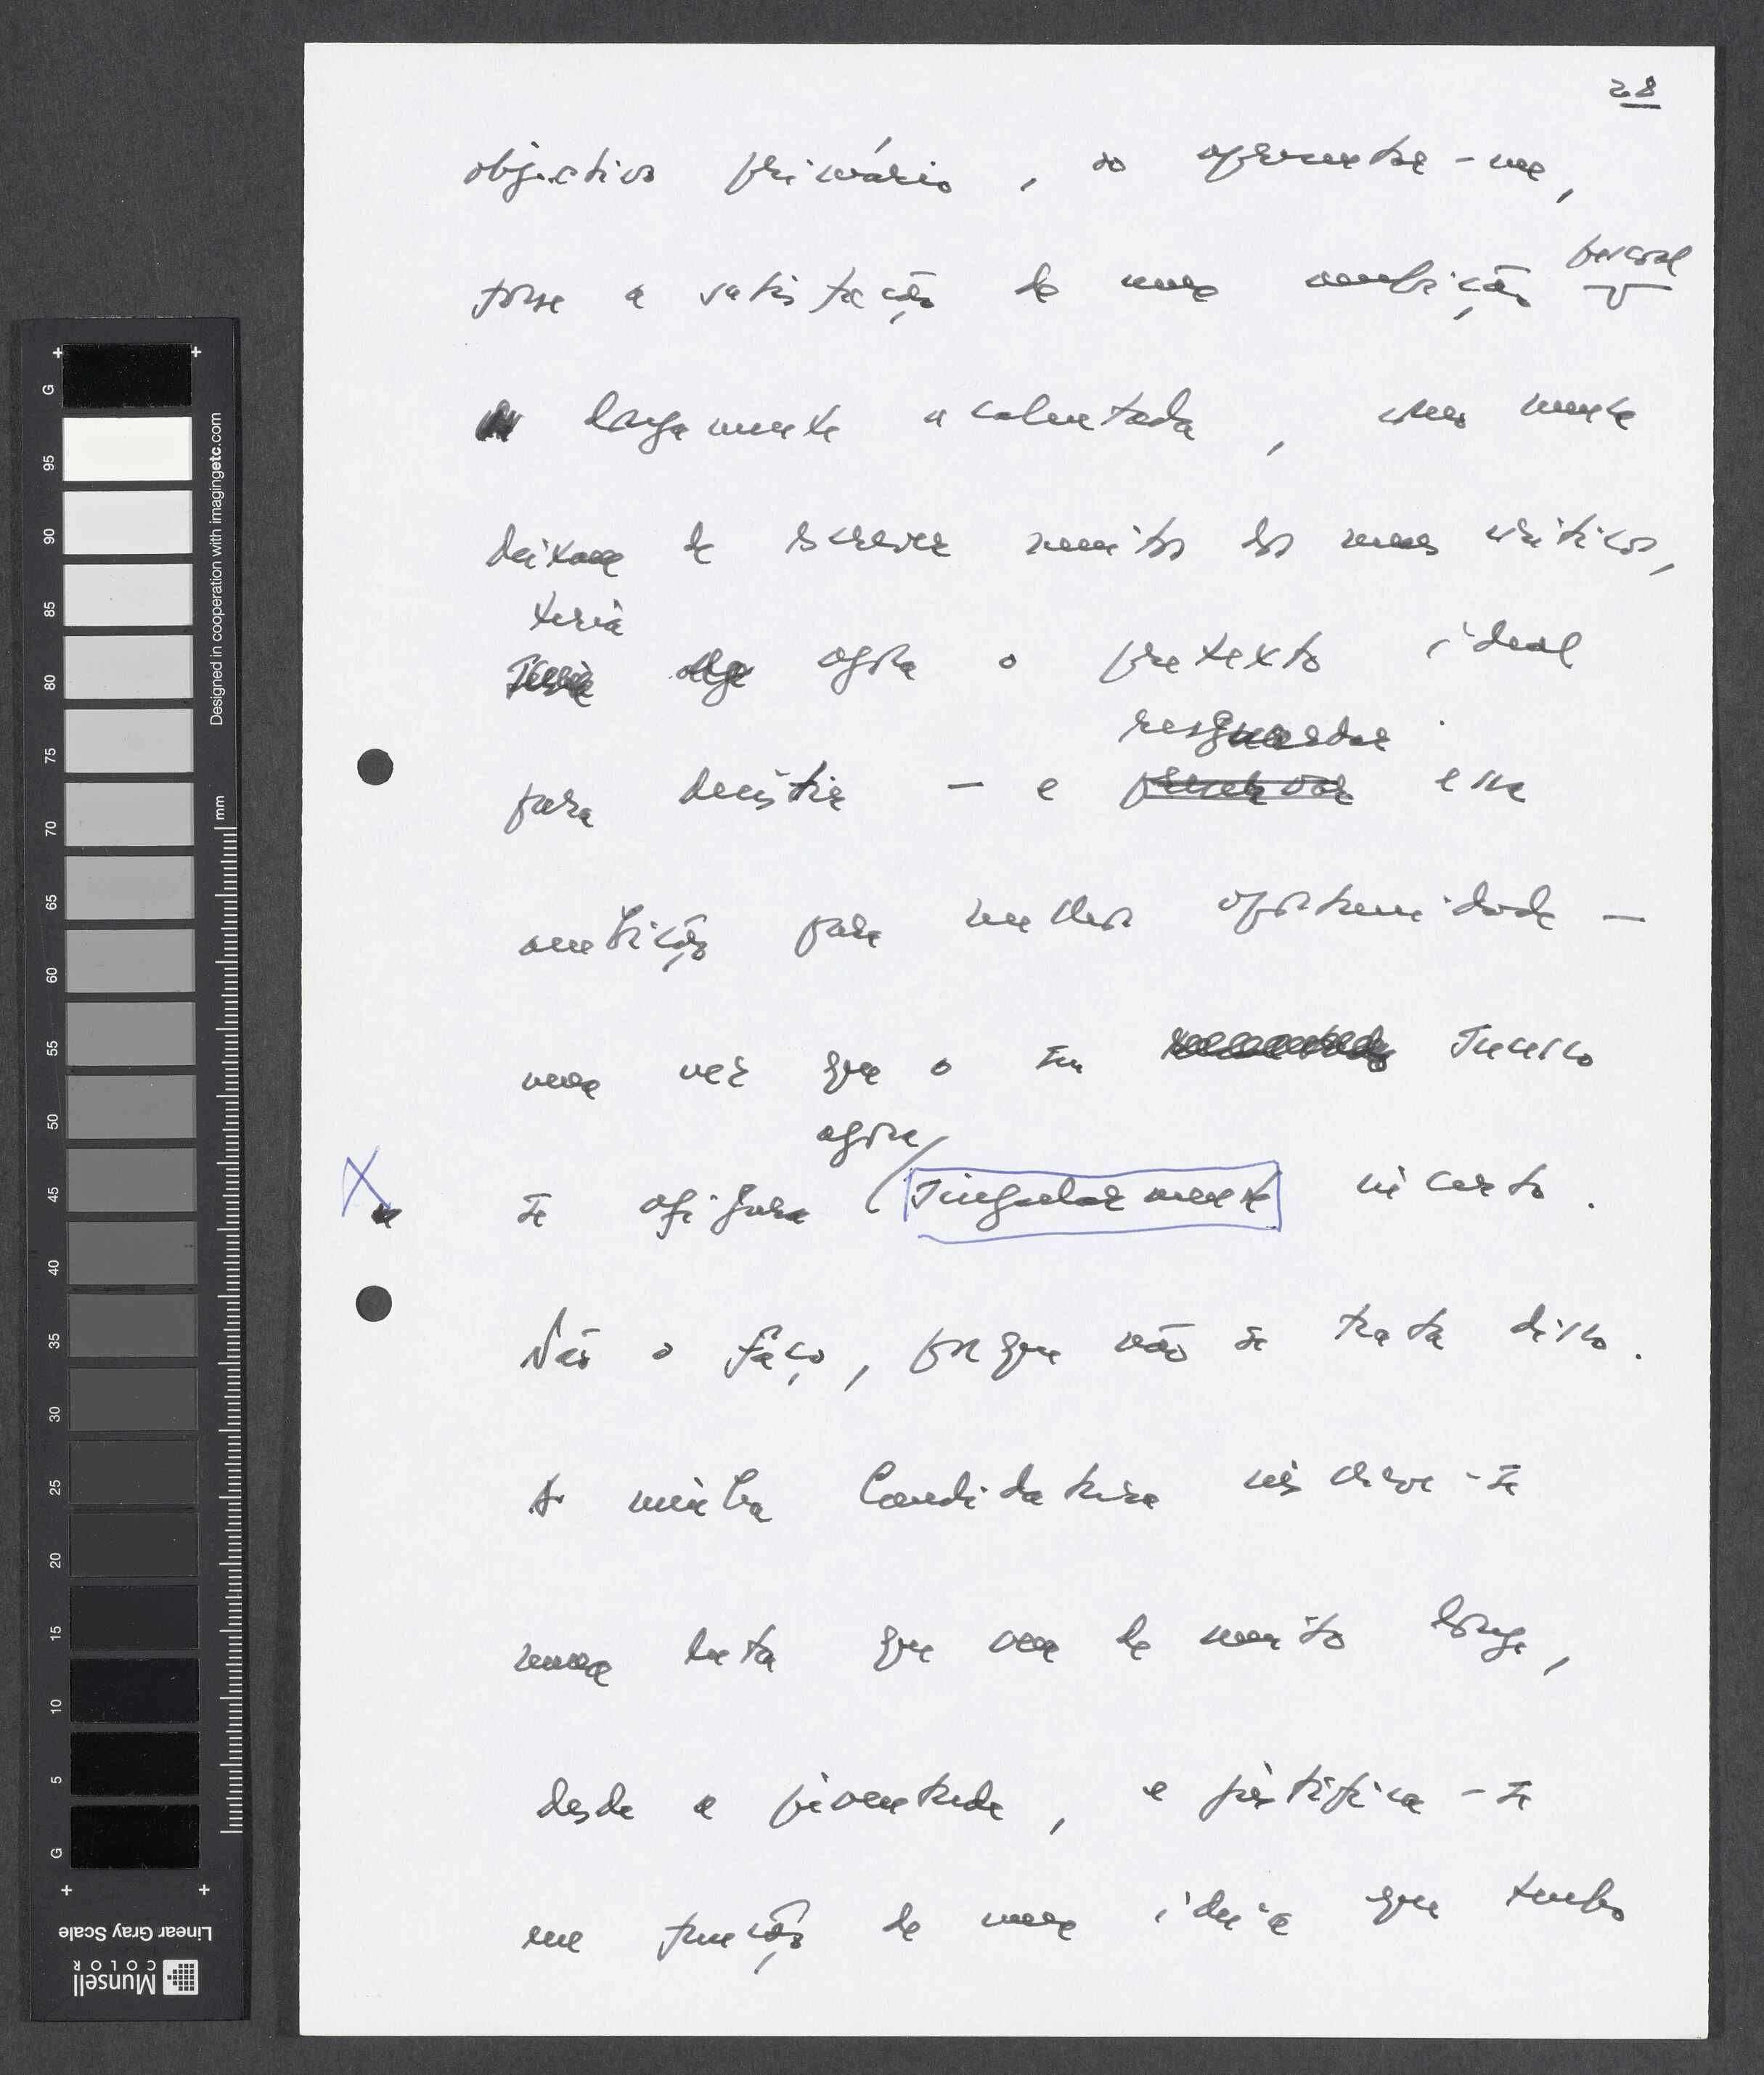 28
objectivo primário, ao apresentar-me,
fosse a satisfação de uma ambição pessoal
longamente acalentada, como nunca
deixam de escrever muitos dos meus críticos,
teria
agora o pretexto ideal
resguardar
para desistir - e essa
ambição para melhor oportunidade -
uma vez que o seu sucesso
agora
se afigura singularmente incerto.
Não o faço, porque não se trata disso.
A minha Candidatura inscreve-se
numa luta que vem de muito longe,
desde a juventude, e justifica-se
em função de uma ideia que tenho
G
95
90
85
80
75
70
65
60
55
50
45
40
35
30
25
20
15
10
5
G
Designed in cooperation with imagingetc.com
mm
Linear Gray Scale
Munsell
COLOR